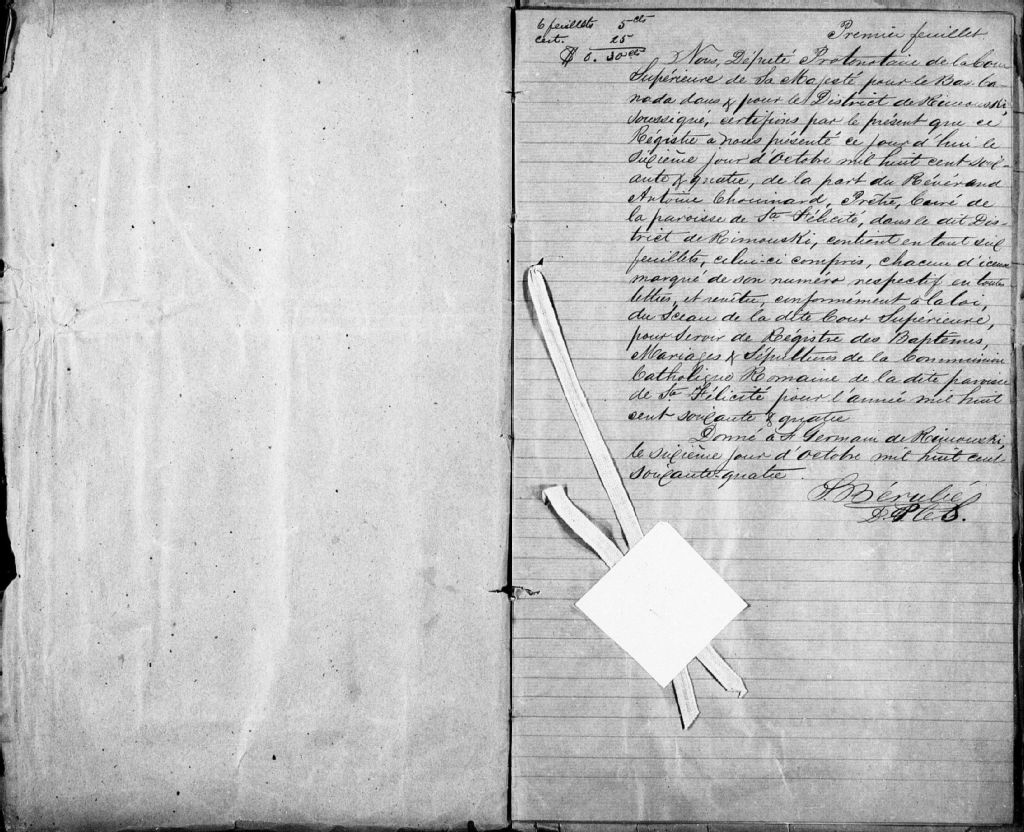 6 feuillets 5 cts
cert. 25
$ 0. 30 cts
Premier feuillet
Nous, Député Protonotaire de la Cour
Supérieure de Sa Majesté pour le Bas Ca-
nada dans & pour le District de Rimouski,
soussigné, certifions par le présent que ce
Régistre à nous présenté ce jour d'hui le
sixième jour d'Octobre mil huit cent soix-
ante & quatre, de la part du Révérend
Antoine Chouinard, Prêtre, Curé de
la paroisse de Ste Félicité, dans le dit Dis-
trict de Rimouski, contient en tout six
feuillets, celui-ci compris, chacun d'iceux
marqué de son numéro respectif en toutes
lettres, et revêtu, conformément à la loi,
du Sceau de la dite Cour Supérieure,
pour servir de Régistre des Baptêmes,
Mariages & Sépultures de la Communion
Catholique Romaine de la dite paroisse
de Ste Félicité pour l'année mil huit
cent soixante & quatre
Donné à St Germain de Rimouski,
le sixième jour d'Octobre mil huit cent
soixante-quatre.
D. P. C. S.